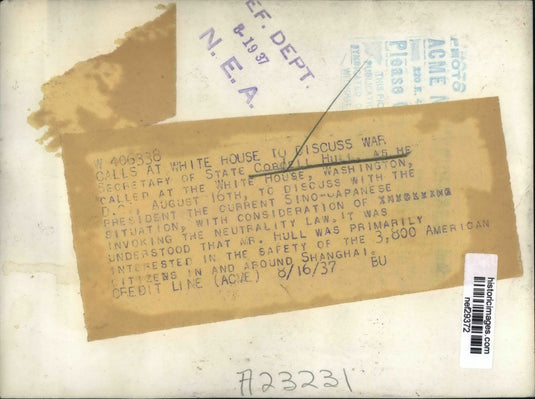 REF. DEPT.
8-19 37
N. E. A.
PHOTO
ACME N
220 E. 4
Please
THIS PIC
PUBLICATION
W 406338
CALLS AT WHITE HOUSE TO DISCUSS WAR
SECRETARY OF STATE CORDELL HULL, AS HE
CALLED AT THE WHITE HOUSE, WASHINGTON,
D.C., AUGUST 16TH, TO DISCUSS WITH THE
PRESIDENT THE CURRENT SINO-JAPANESE
SITUATION, WITH CONSIDERATION OF
INVOKING THE NEUTRALITY LAW. IT WAS
UNDERSTOOD THAT MR. HULL WAS PRIMARILY
INTERESTED IN THE SAFETY OF THE 3,800 AMERICAN
CITIZENS IN AND AROUND SHANGHAI.
CREDIT LINE (ACME) 8/16/37 BU
historicimages.com
nef29372
A23231